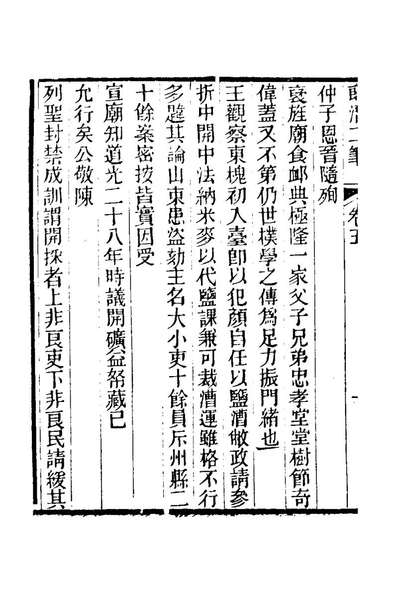 卷五 一
仲子恩晉隨殉
褒旌廟食卹典極隆一家父子兄弟忠孝堂堂樹節奇
偉蓋又不第仍世樸學之傳爲足力振門緒也
王觀察東槐初入臺卽以犯顏自任以鹽漕敝政請參
折中開中法納米麥以代鹽課兼可裁漕運雖格不行
多韙其論山東患盜劾主名大小吏十餘員斥州縣二
十餘案密按皆實因受
宣廟知道光二十八年時議開礦益帑藏已
允行矣公敬陳
列聖封禁成訓謂開採者上非良吏下非良民請緩其